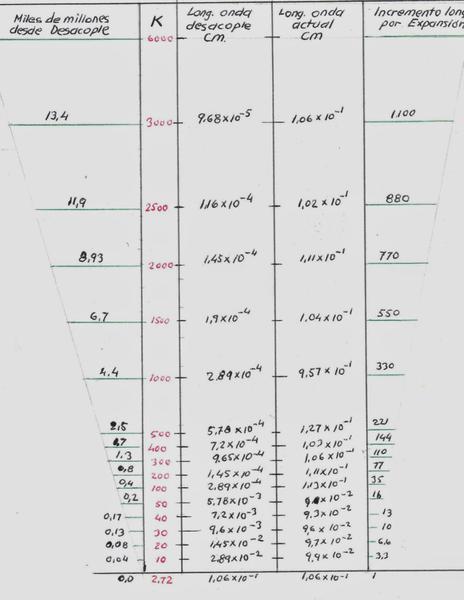 Miles de millones desde Desacople K Long. onda desacople Cm. Long. onda actual CM Incremento long por Expansión
6000
13,4 3000 9.68x10-5 1,06x10-1 1.100
11,9 2500 1,16x10-4 1,02x10-1 880
8,93 2000 1,45x10-4 1,11x10-1 770
6,7 1500 1,9x10-4 1.04x10-1 550
4.4 1000 2.89x10-4 9,57x10-1 330
2,5 500 5.78x10-4 1,27x10-1 221
400 7,2x10-4 1,03x10-1 144
1.3 300 9.65x10-4 1,06x10-1 110
0,8 200 1,45x10-4 1,11x10-1 77
0,4 100 2.89x10-4 1,13x10-1 35
0,2 50 5.78x10-3 16
0,17 40 7,2x10-3 9.3x10-2 13
0,13 30 9,6x10-3 9,6x10-2 10
0,08 20 1,45x10-2 9,7x10-2 6,6
0,04 10 2.89x10-2 9,4x10-2 3,3
0,0 2.72 1,06x10-1 1,06x10-1 1